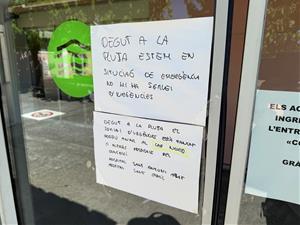 DEGUT A LA
PLUJA ESTEM EN
SITUACIÓ DE EMERGÈNCIA
NO HI HA SERVEI
D'URGÈNCIES
DEGUT A LA PLUJA EL
SERVEI D'URGÈNCIES ESTÀ TANCAT
PODEU ANAR AL CAP NORD
O ALTRES HOSPITALS DEL
HOSPITAL SANT
HOSPITAL SANT
ELS AC
INGRE
L'ENTR
"CO
GRÀ